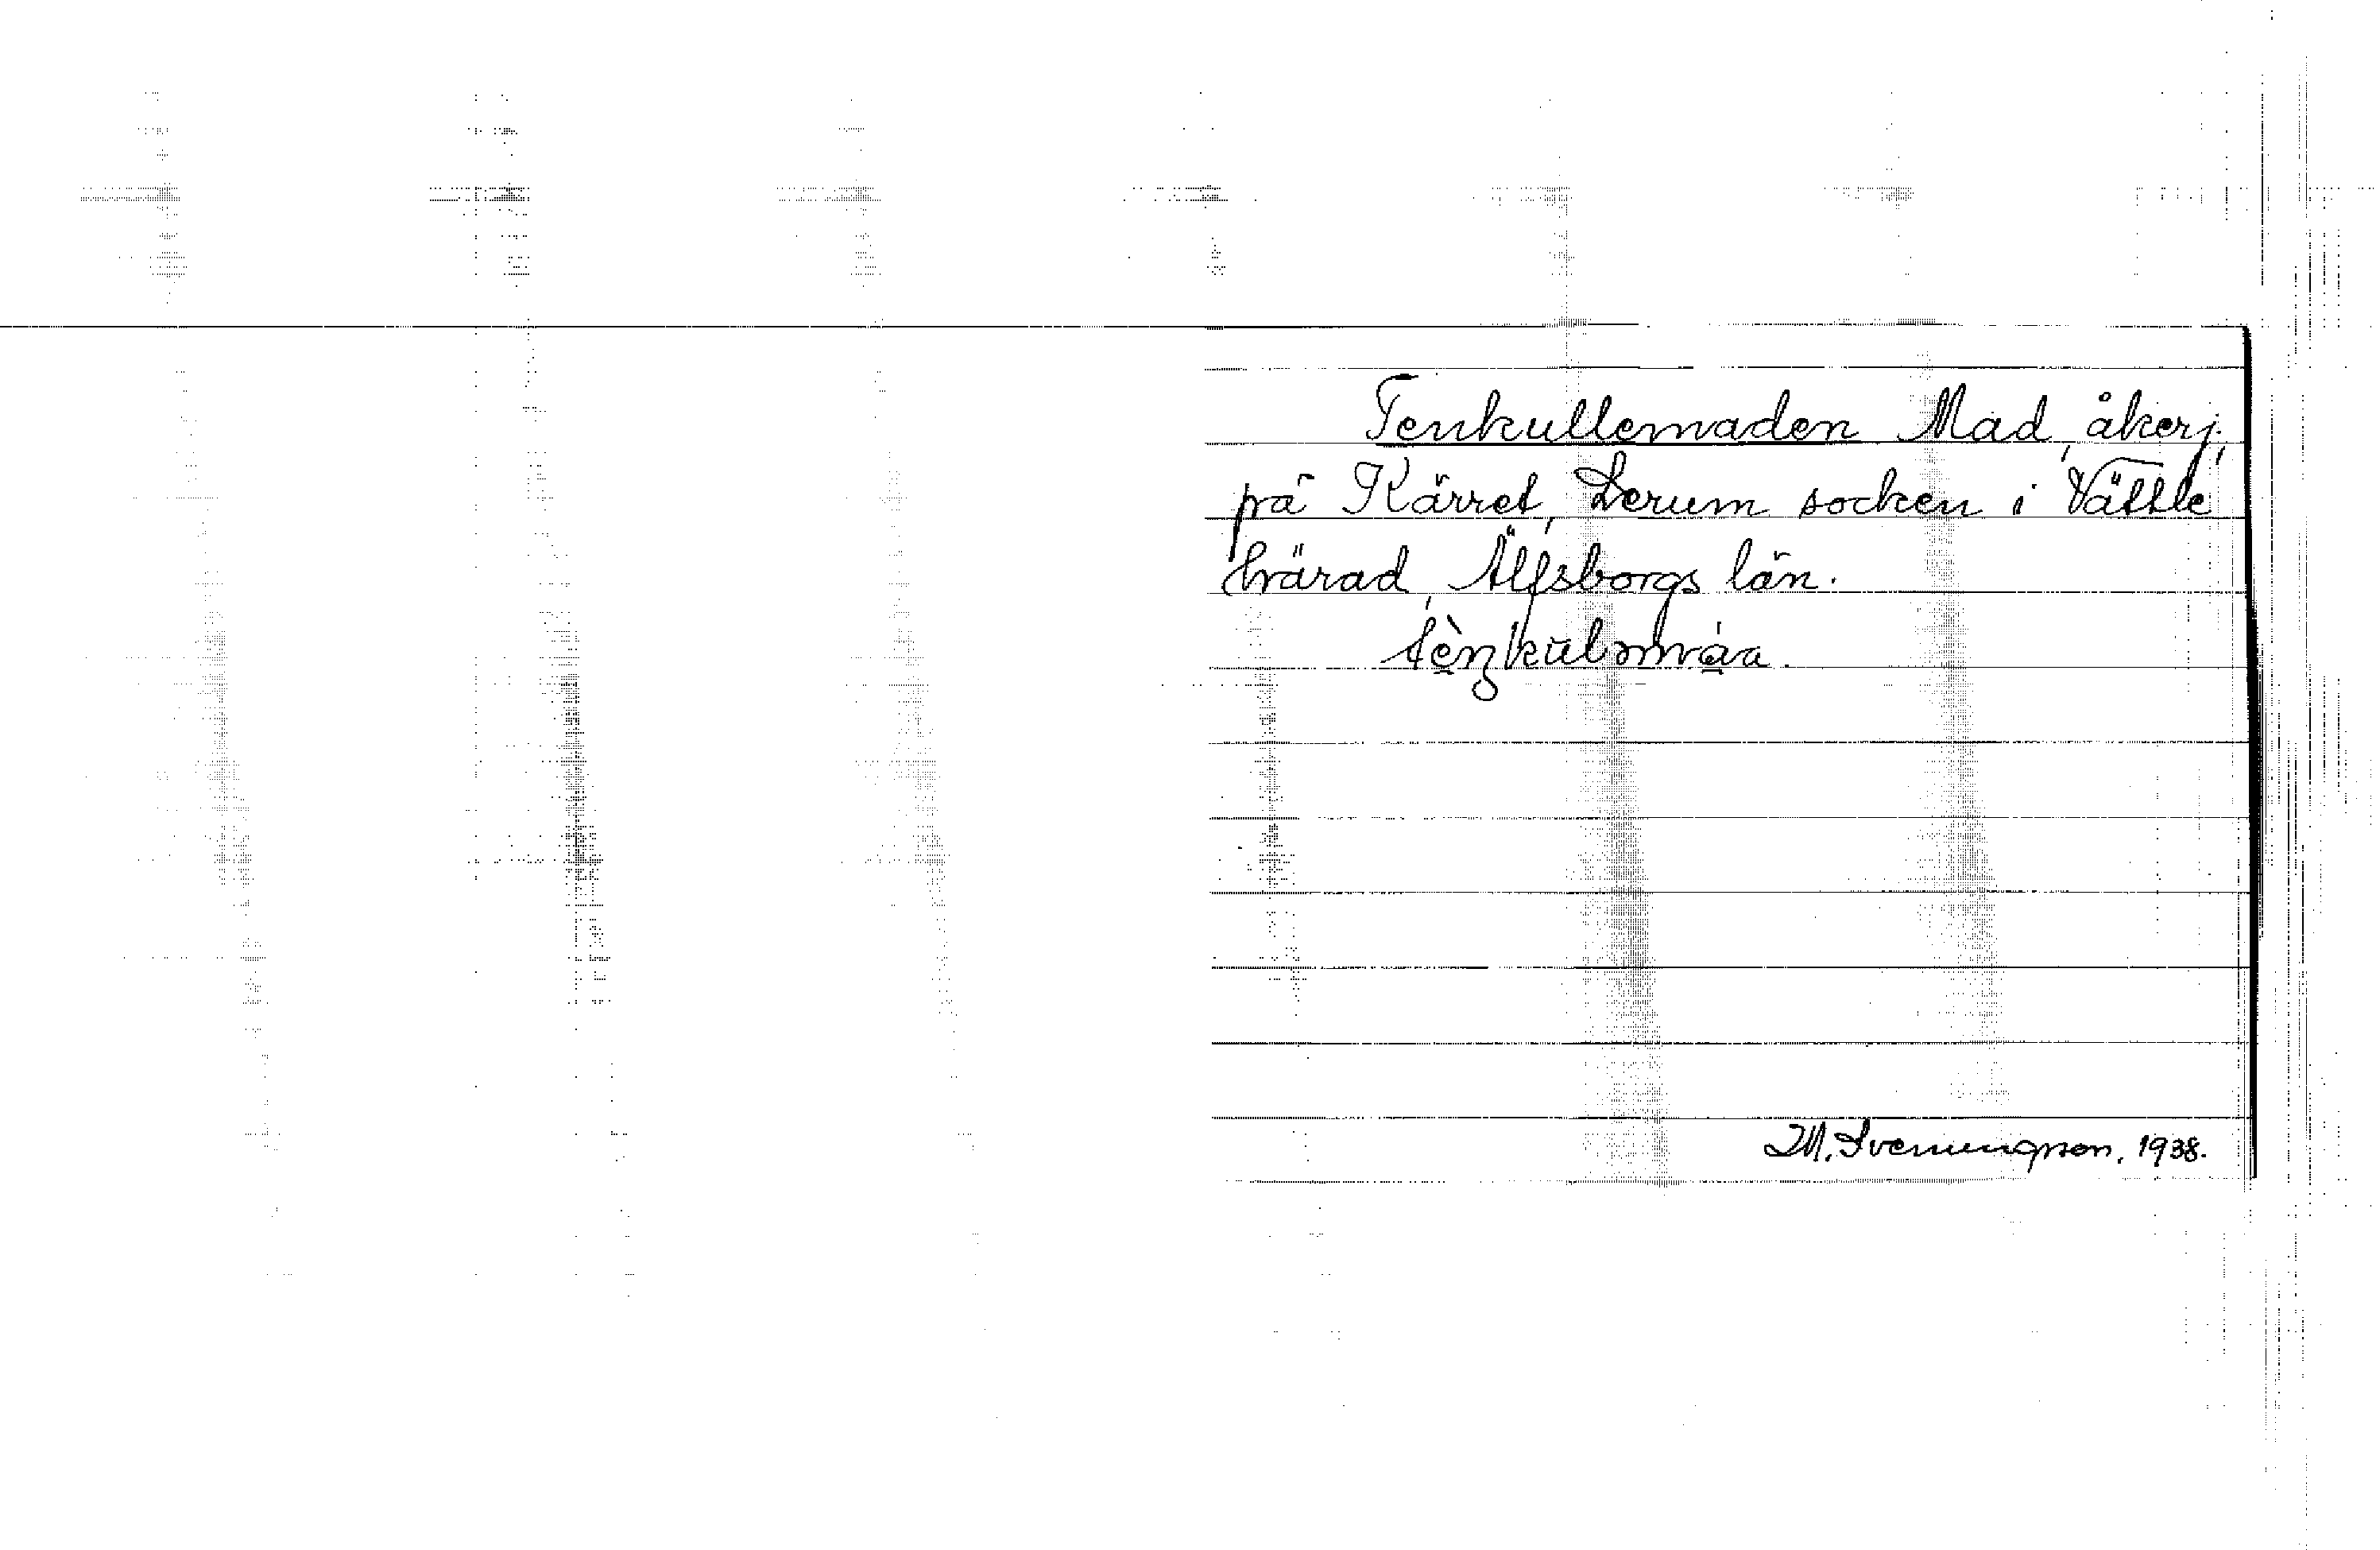 Tenkullemaden Mad, åkerj.,
på Kärret, Lerum socken i Vättle
härad, Älfsborgs län.
M. Svenungsson, 1938.